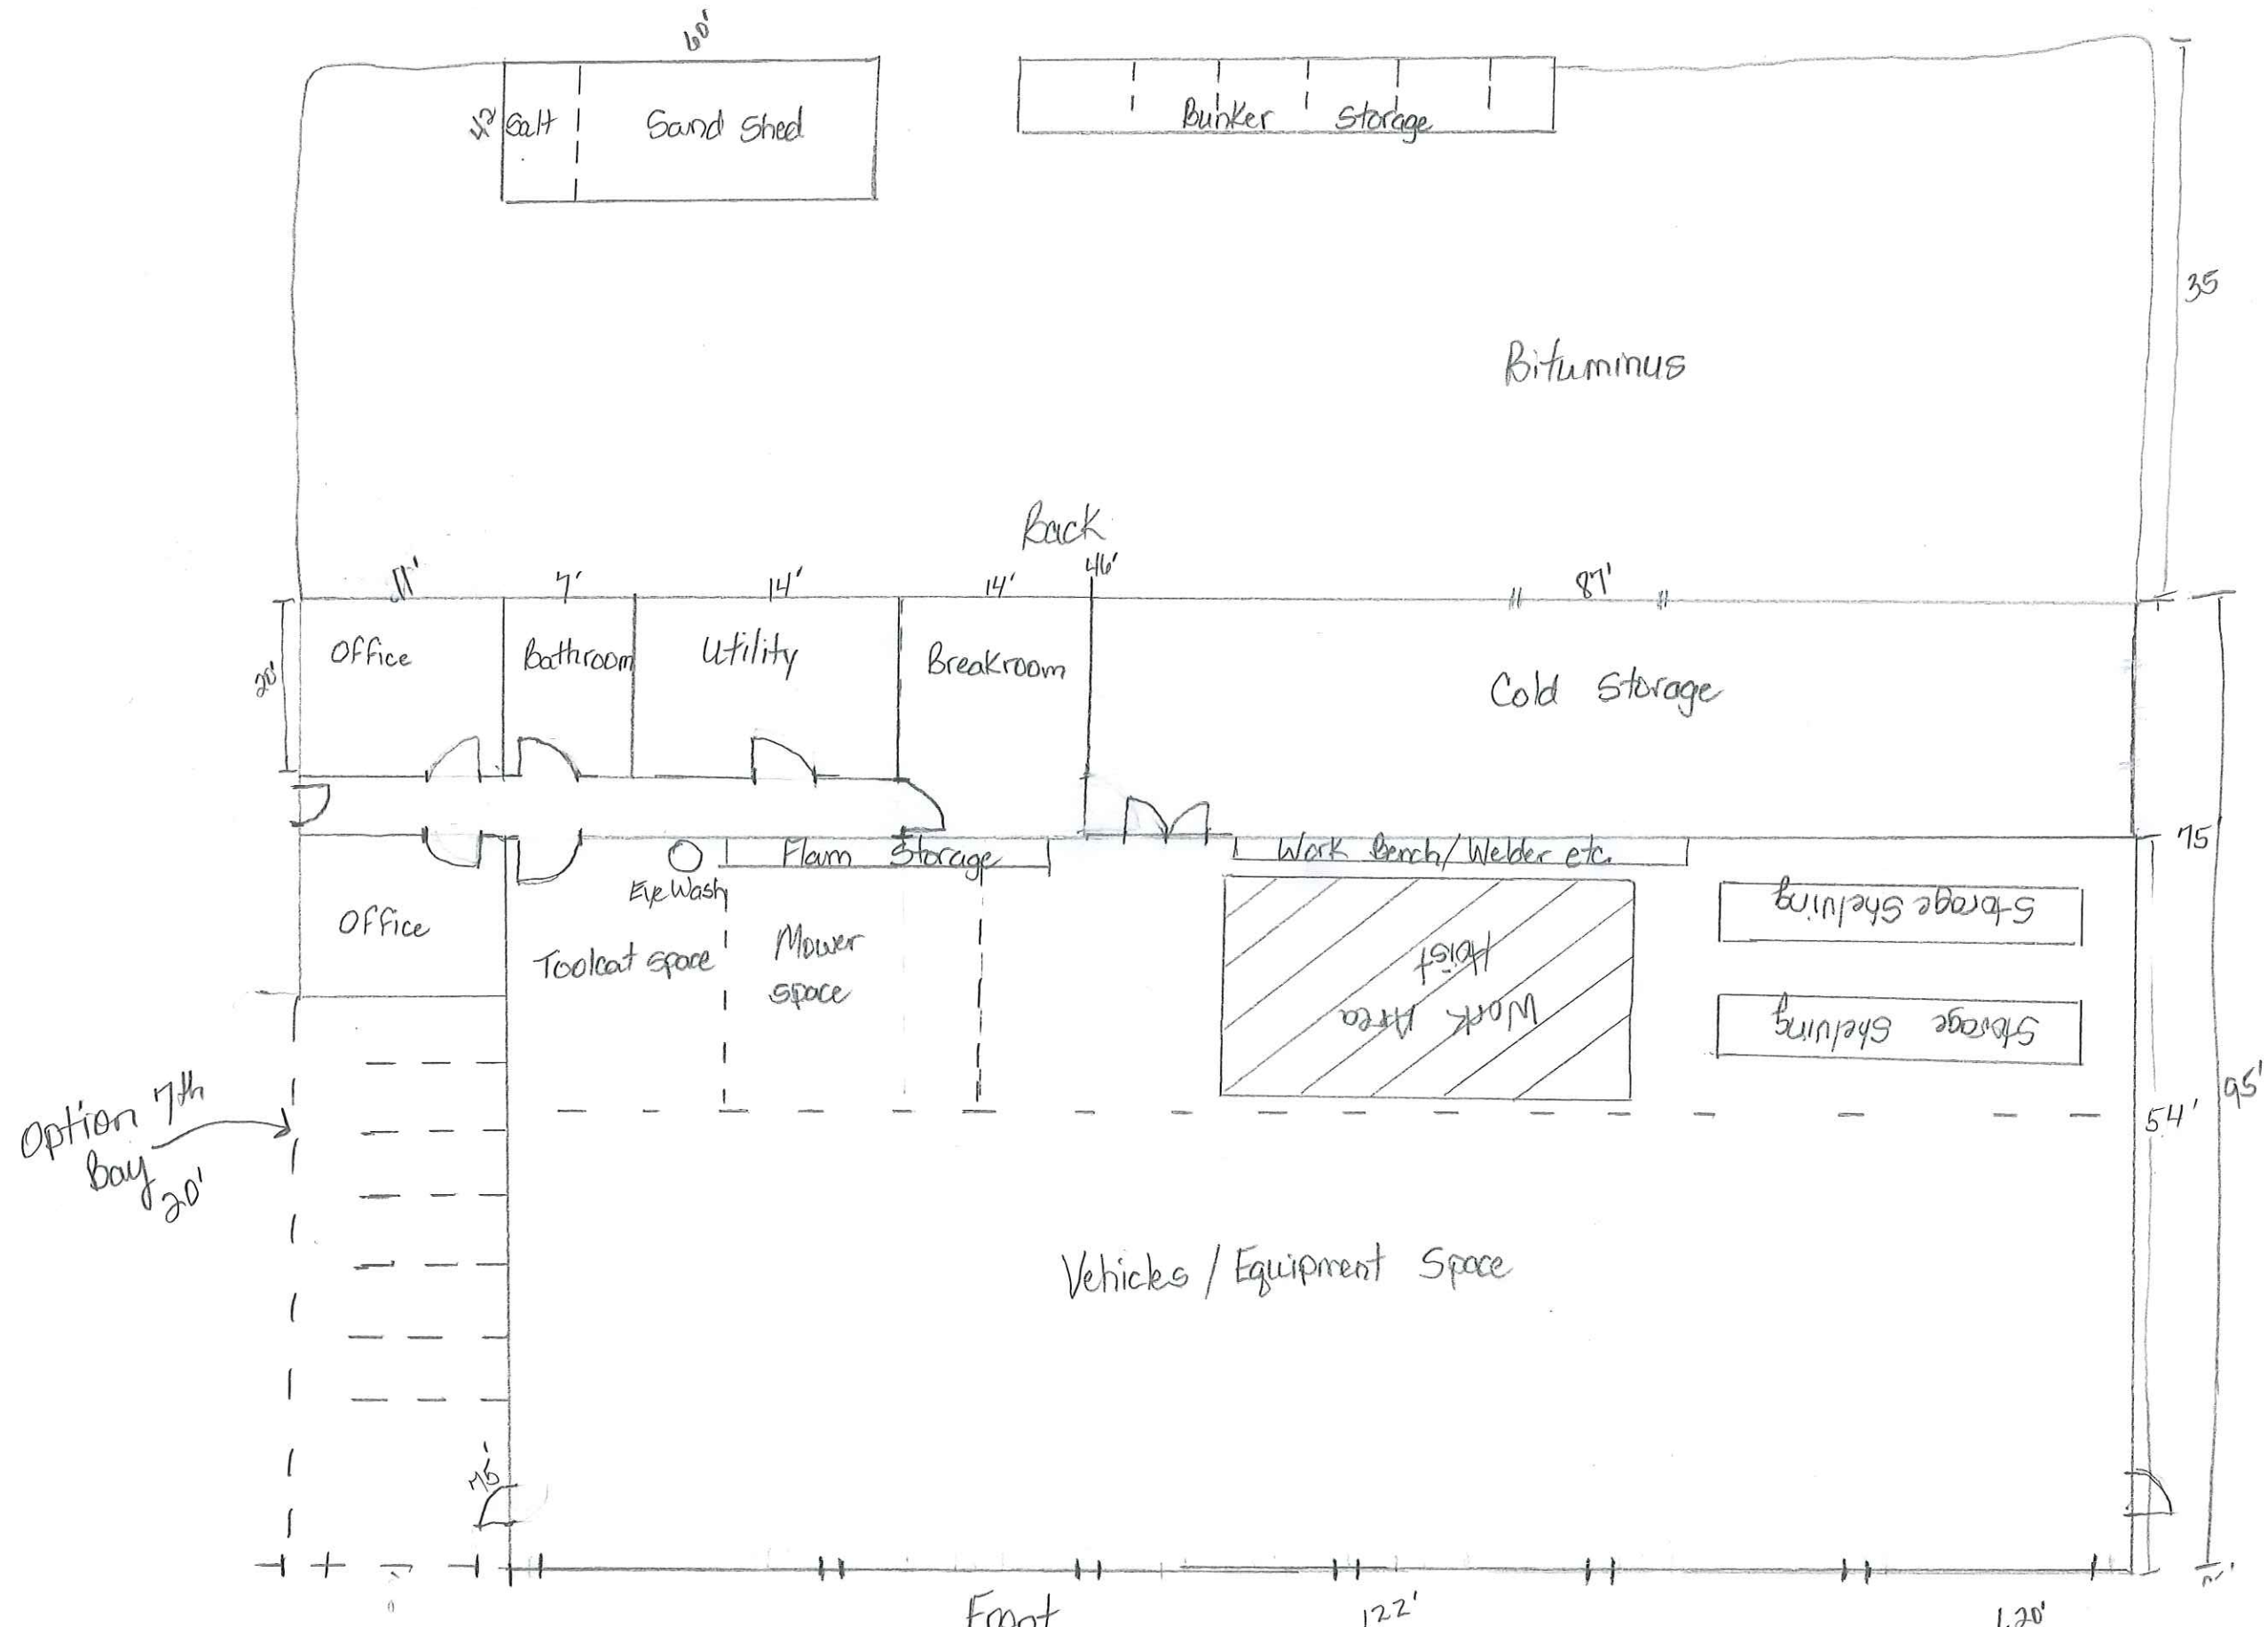 60'
42
Salt
Sand Shed
Bunker Storage
35
Bituminus
Back
11'
7'
14'
14'
46'
87'
20'
Office
Bathroom
Utility
Breakroom
Cold Storage
75
Flam Storage
Work Bench/Welder etc.
Eye Wash
Office
Toolcat space
Mower
space
Hoist
Work Area
Storage Shelving
Storage Shelving
Option 7th
Bay
20'
54'
95'
Vehicles / Equipment Space
75'
Front
122'
120'